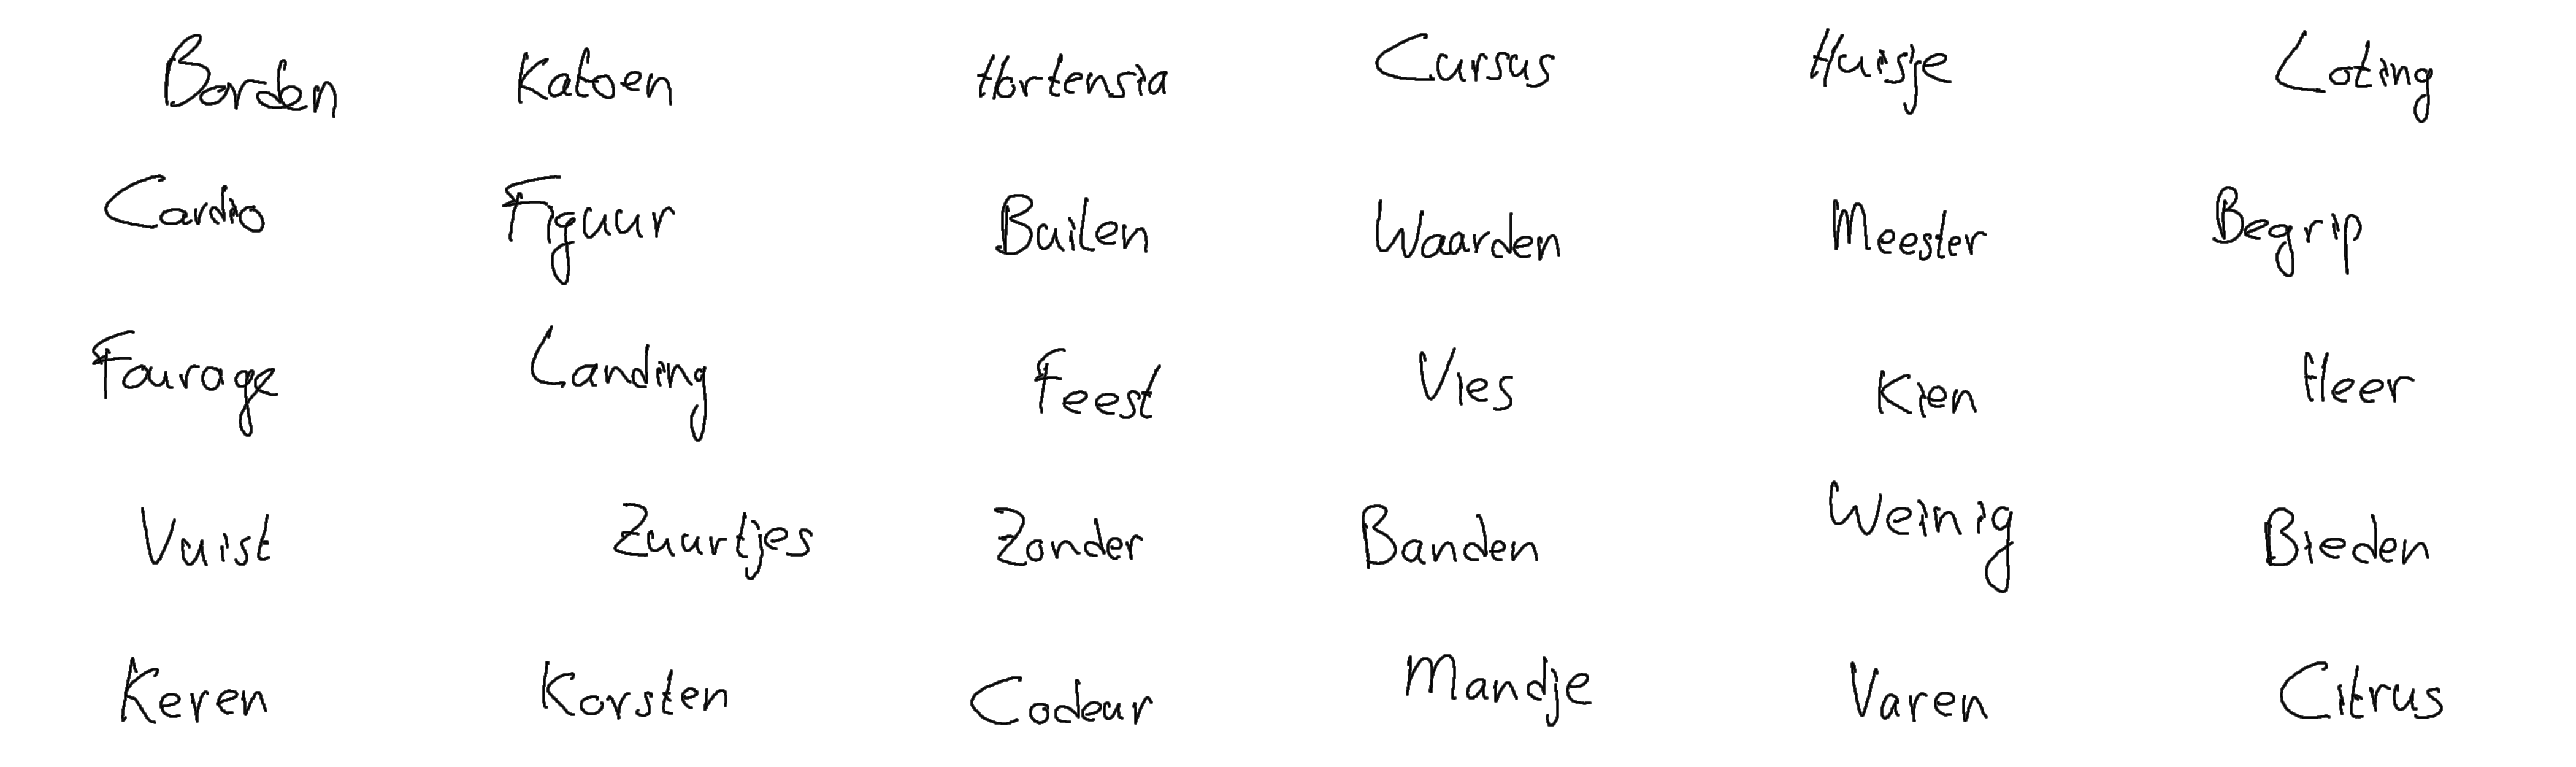 Borden Katoen Hortensia Cursus Huisje Loting
Cardio Figuur Builen Waarden Meester Begrip
Fourage Landing Feest Vies Kien Heer
Vuist Zuurtjes Zonder Banden Weinig Bieden
Keren Korsten Codeur Mandje Varen Citrus